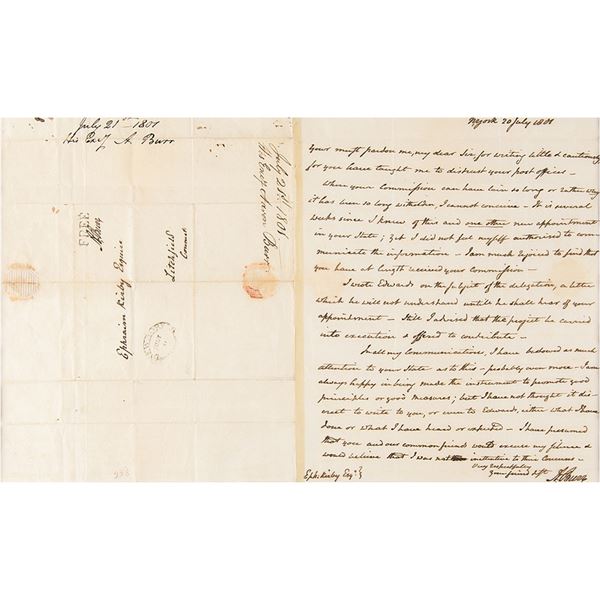 July 21st 1801
His Exc'y A. Burr
July 21st 1801
His Excy Aaron Burr
FREE
A Burr
Ephraim Kirby Esquire
Litchfield
Connect
NYork 20 July 1801
you must pardon me, my dear Sir, for writing little & cautiously
for you have taught me to distrust your post offices —
Where your Commission can have lain so long or rather why
it has been so long withdrawn, I cannot conceive — It is several
weeks since I knew of this and one other new appointment
in your State; yet I did not feel myself authorised to com-
municate the information — I am much rejoiced to find that
you have at length received your commission —
I wrote Edwards on the subject of the delegation, a letter
which he will not understand until he shall hear of your
appointment — Still I advised that the project be carried
into execution & offered to contribute —
In all my Communications, I have bestowed as much
attention to your State as to this — probably even more — I am
always happy in being made the instrument to promote good
principles or good measures; but I have not thought it dis-
creet to write to you, or even to Edwards, either what I have
done or what I have heard or expected — I have presumed
that you and our common friends would excuse my silence &
would believe that I was not inattentive to their Concerns —
Very respectfully
Your friend & st
A Burr
Eph: Kirby Esqr